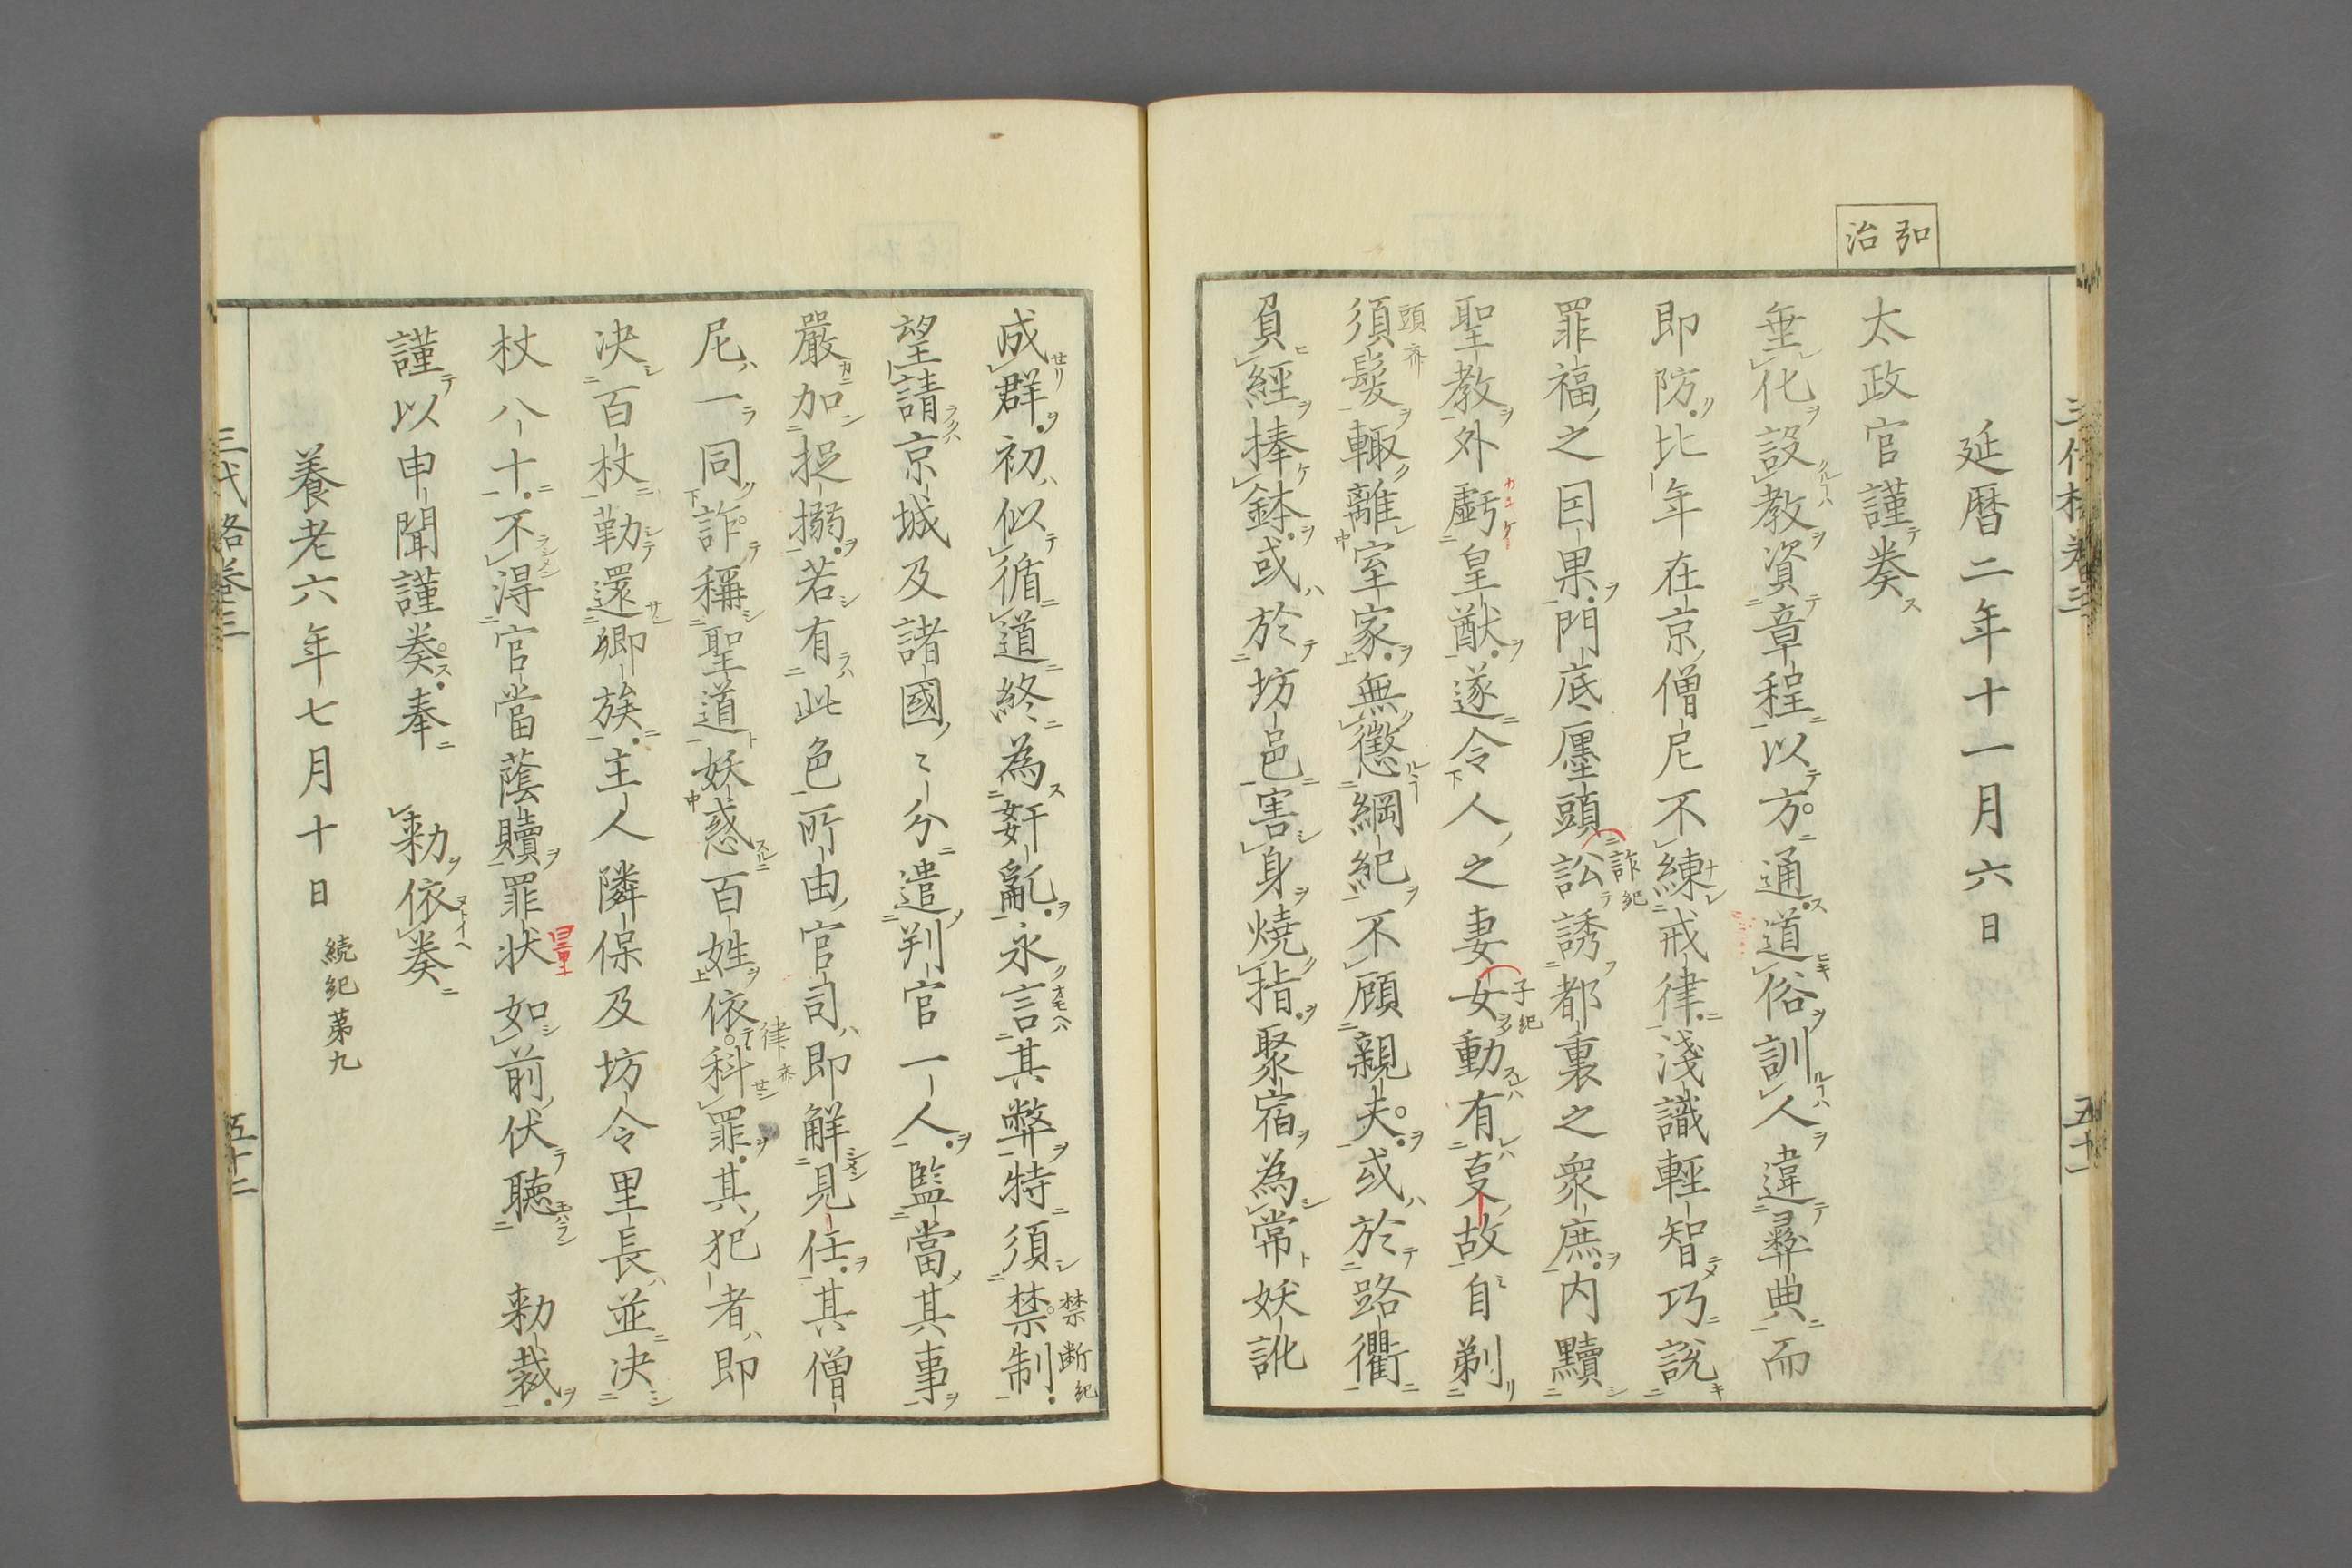 弘治
延暦二年十一月六日
太政官謹奏
垂化設教資章程以方通道俗訓人違彝典而
即防比年在京僧尼不練戒律淺識輕智巧說
罪福之因果門底廛頭訟誘都裏之衆庶内黷
詐紀
聖教外虧皇猷遂令人之妻女動有㕝故自剃
子紀
須髮輙離室家無懲綱紀不顧親夫或於路衢
頭齊
負經捧鉢或於坊邑害身燒指聚宿為常妖訛
成群初似循道終為姧亂永言其弊特須禁制
禁断紀
望請京城及諸國〻分遣判官一人監當其事
嚴加捉搦若有此色所由官司即解見任其僧
尼一同詐稱聖道妖惑百姓依科罪其犯者即
律齊
決百杖勒還郷族主人隣保及坊令里長並決
杖八十不得官當蔭贖罪状如前伏聽　勅裁
量
謹以申聞謹奏奉　勅依奏
養老六年七月十日　続紀第九
三代格卷三　五十二